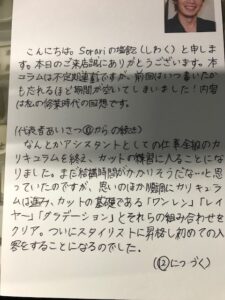 こんにちは。Sorariの塩飽（しわく）と申しま
す。本日のご来店誠にありがとうございます。本
コラムは不定期連載ですが、前回はいつ書いたか
もだれるほど期間が空いてしまいました！内容
は私の修業時代の回想です。
（代表者あいさつ⑪からの続き）
なんとかアシスタントとしての仕事全般のカ
リキュラムを終え、カットの練習に入ることにな
りました。まだ結構時間がかかりそうだな…と思
っていたのですが、思いのほか順調にカリキュラ
ムは進み、カットの基礎である「ワンレン」「レイ
ヤー」「グラデーション」とそれらの組み合わせを
クリア。ついにスタイリストに昇格し初めての入
客をすることになるのでした。
（⑫につづく）